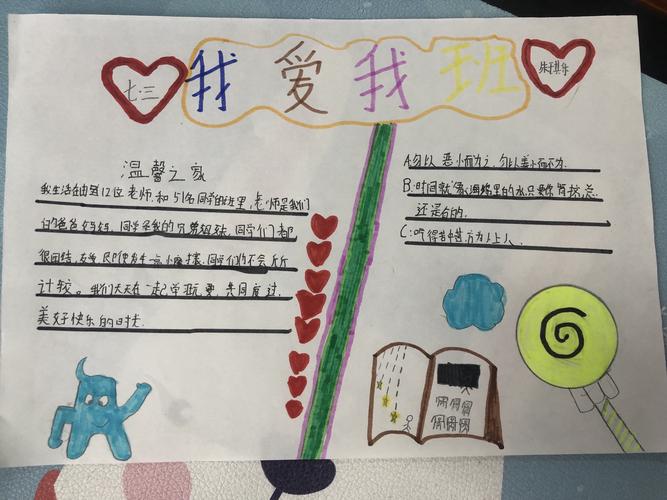 七.三
我爱我班
温馨之家
我生活在由12位老师,和51名同学的班里,老师是我们
的爸爸妈妈,同学是我的兄弟姐妹,同学们都
很团结,友爱,即使发生一点小摩擦,同学们也不会斤斤
计较。我们天天在一起学玩,更共同度过
美好快乐的日子.
A:勿以恶小而为之,勿以善小而不为.
B:时间就象海绵里的水,只要你肯挤,总
还是有的.
C:吃得苦中苦,方为人上人.